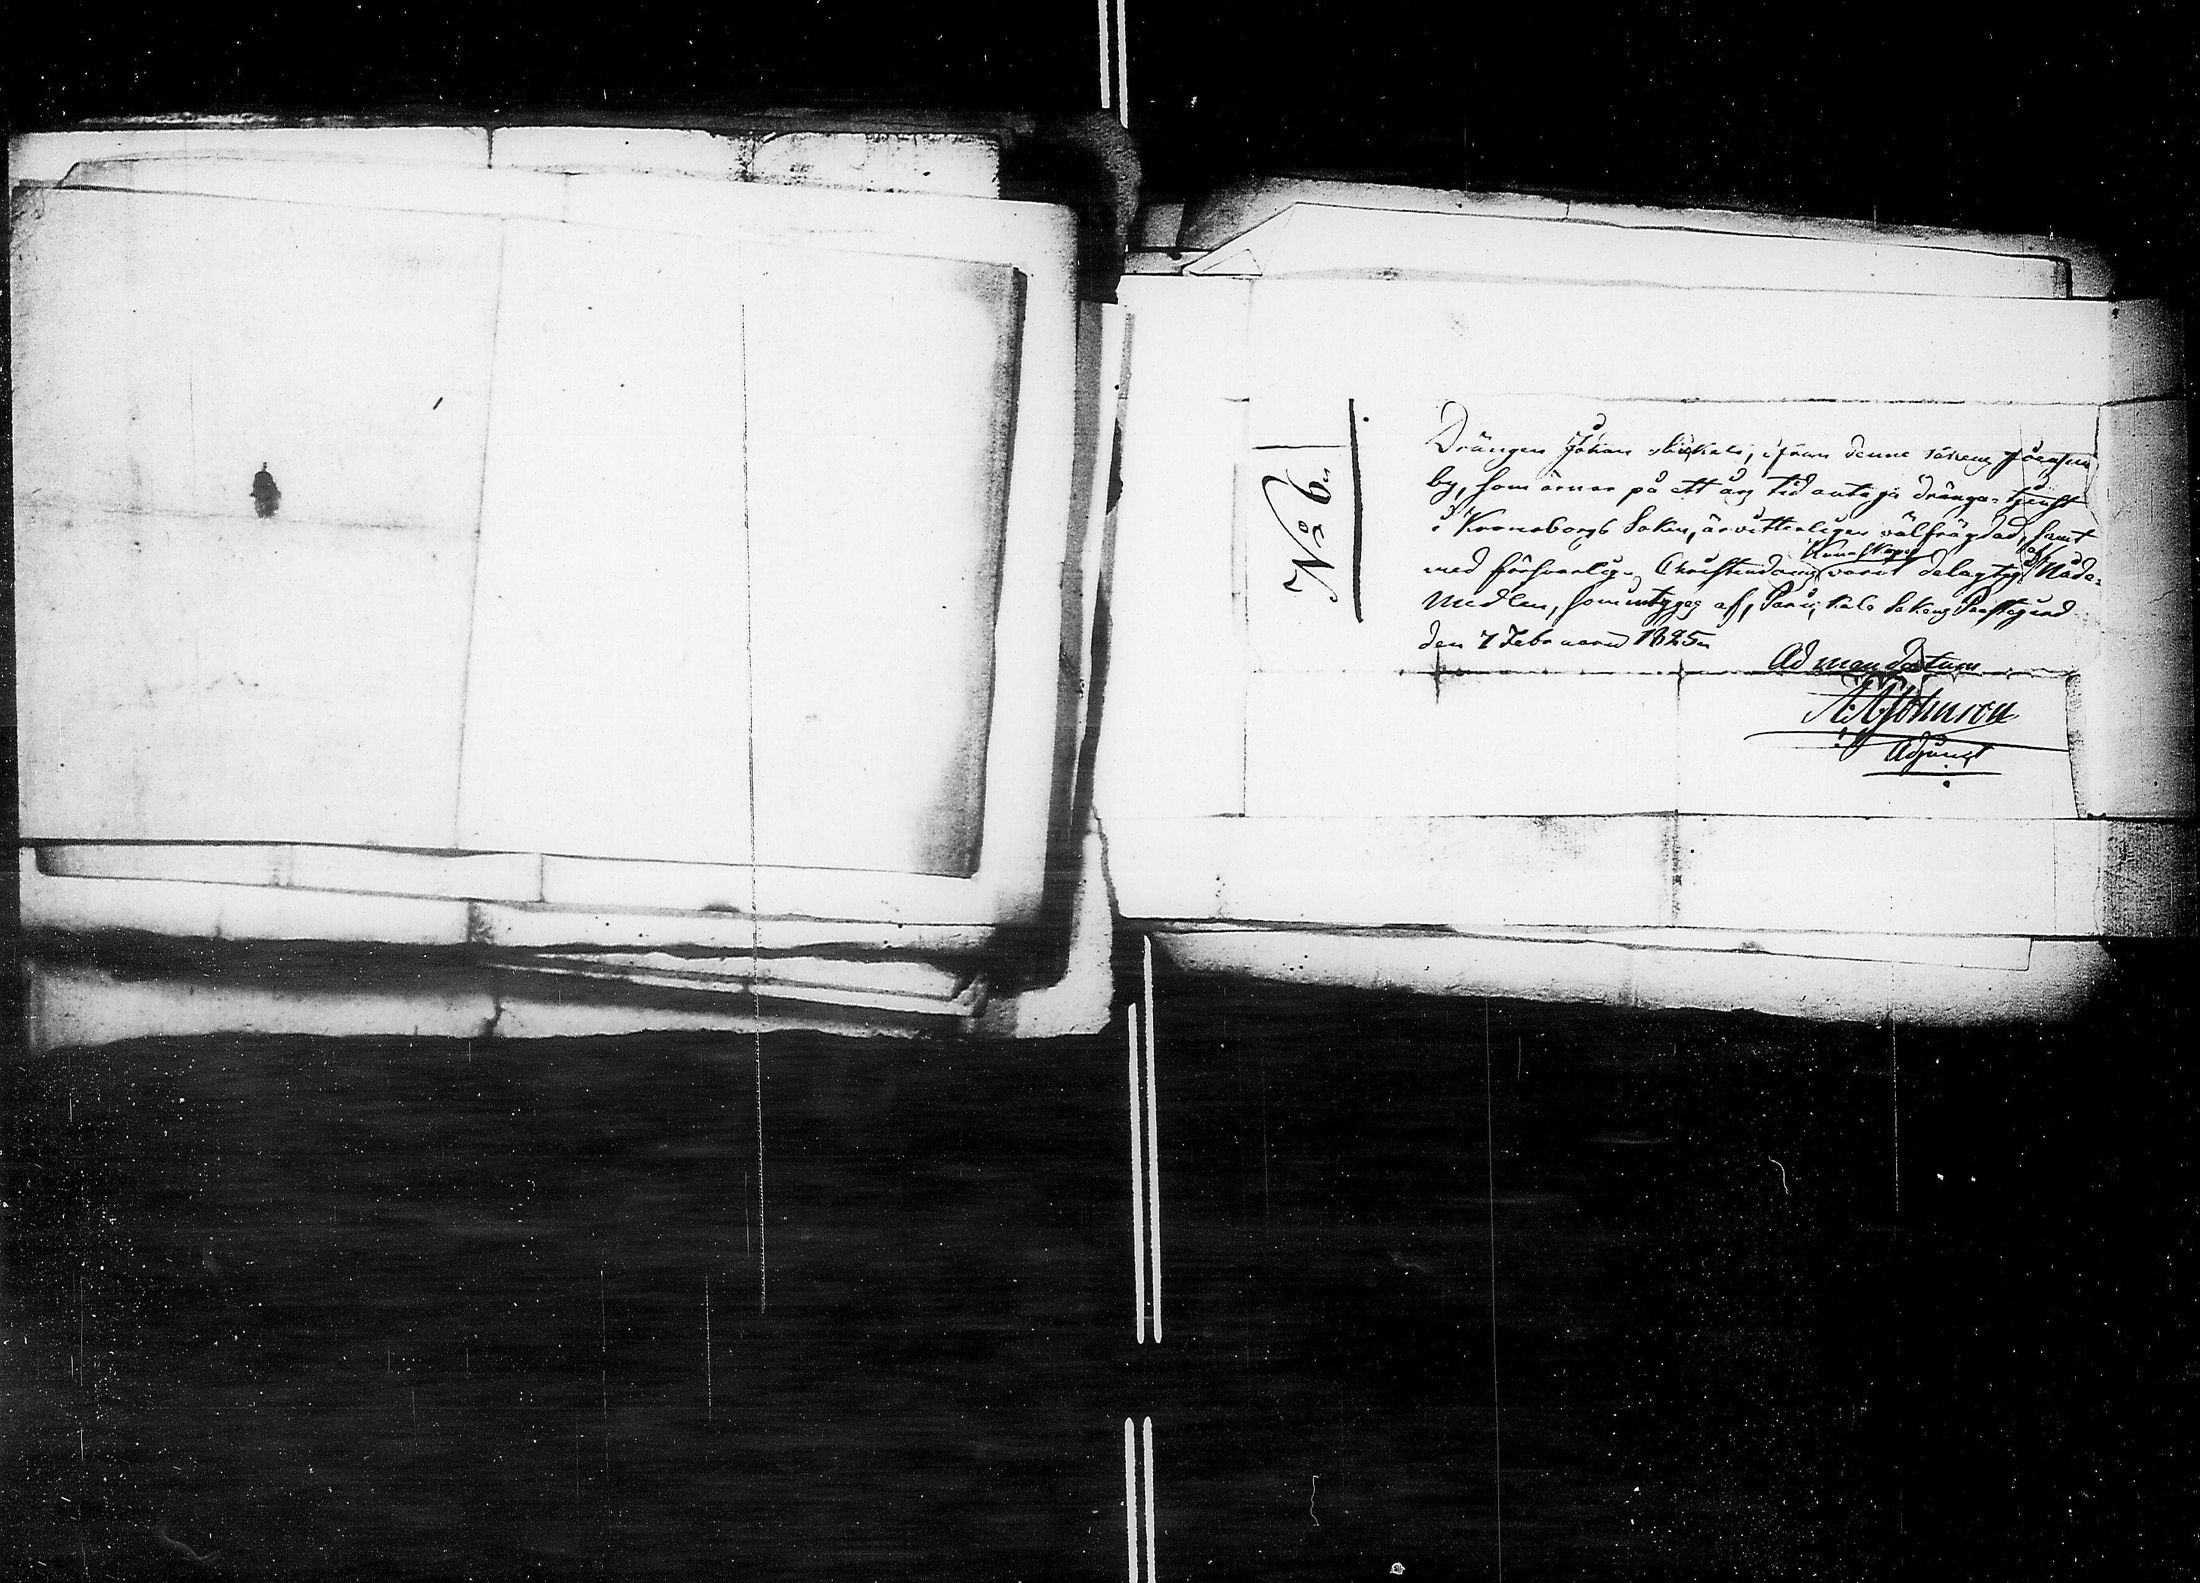 No 6
Drängen Johan ifrån denne sokens
by, som ärnar på ett års tid antaga drängatjenst
i Kroneborgs Soken, är vitterligen välfrägdad, samt
med försvarlig Christendoms Kunskap varit delagtig af Nåde-
Medlen, som intygas af, Parikala Sokens Prestgård
den 7 Februarii 1825
Ad mandatum
Johnson
Adjunct